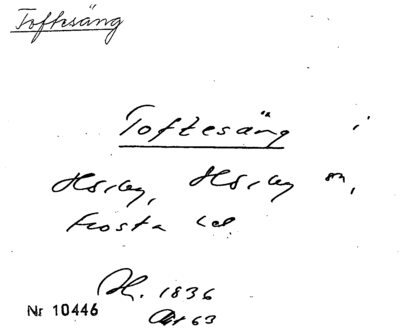 Toftesäng
Toftesäng i
Hörby, Hörby sn,
Frosta hd.
H. 1836
Akt 63
Nr 10446